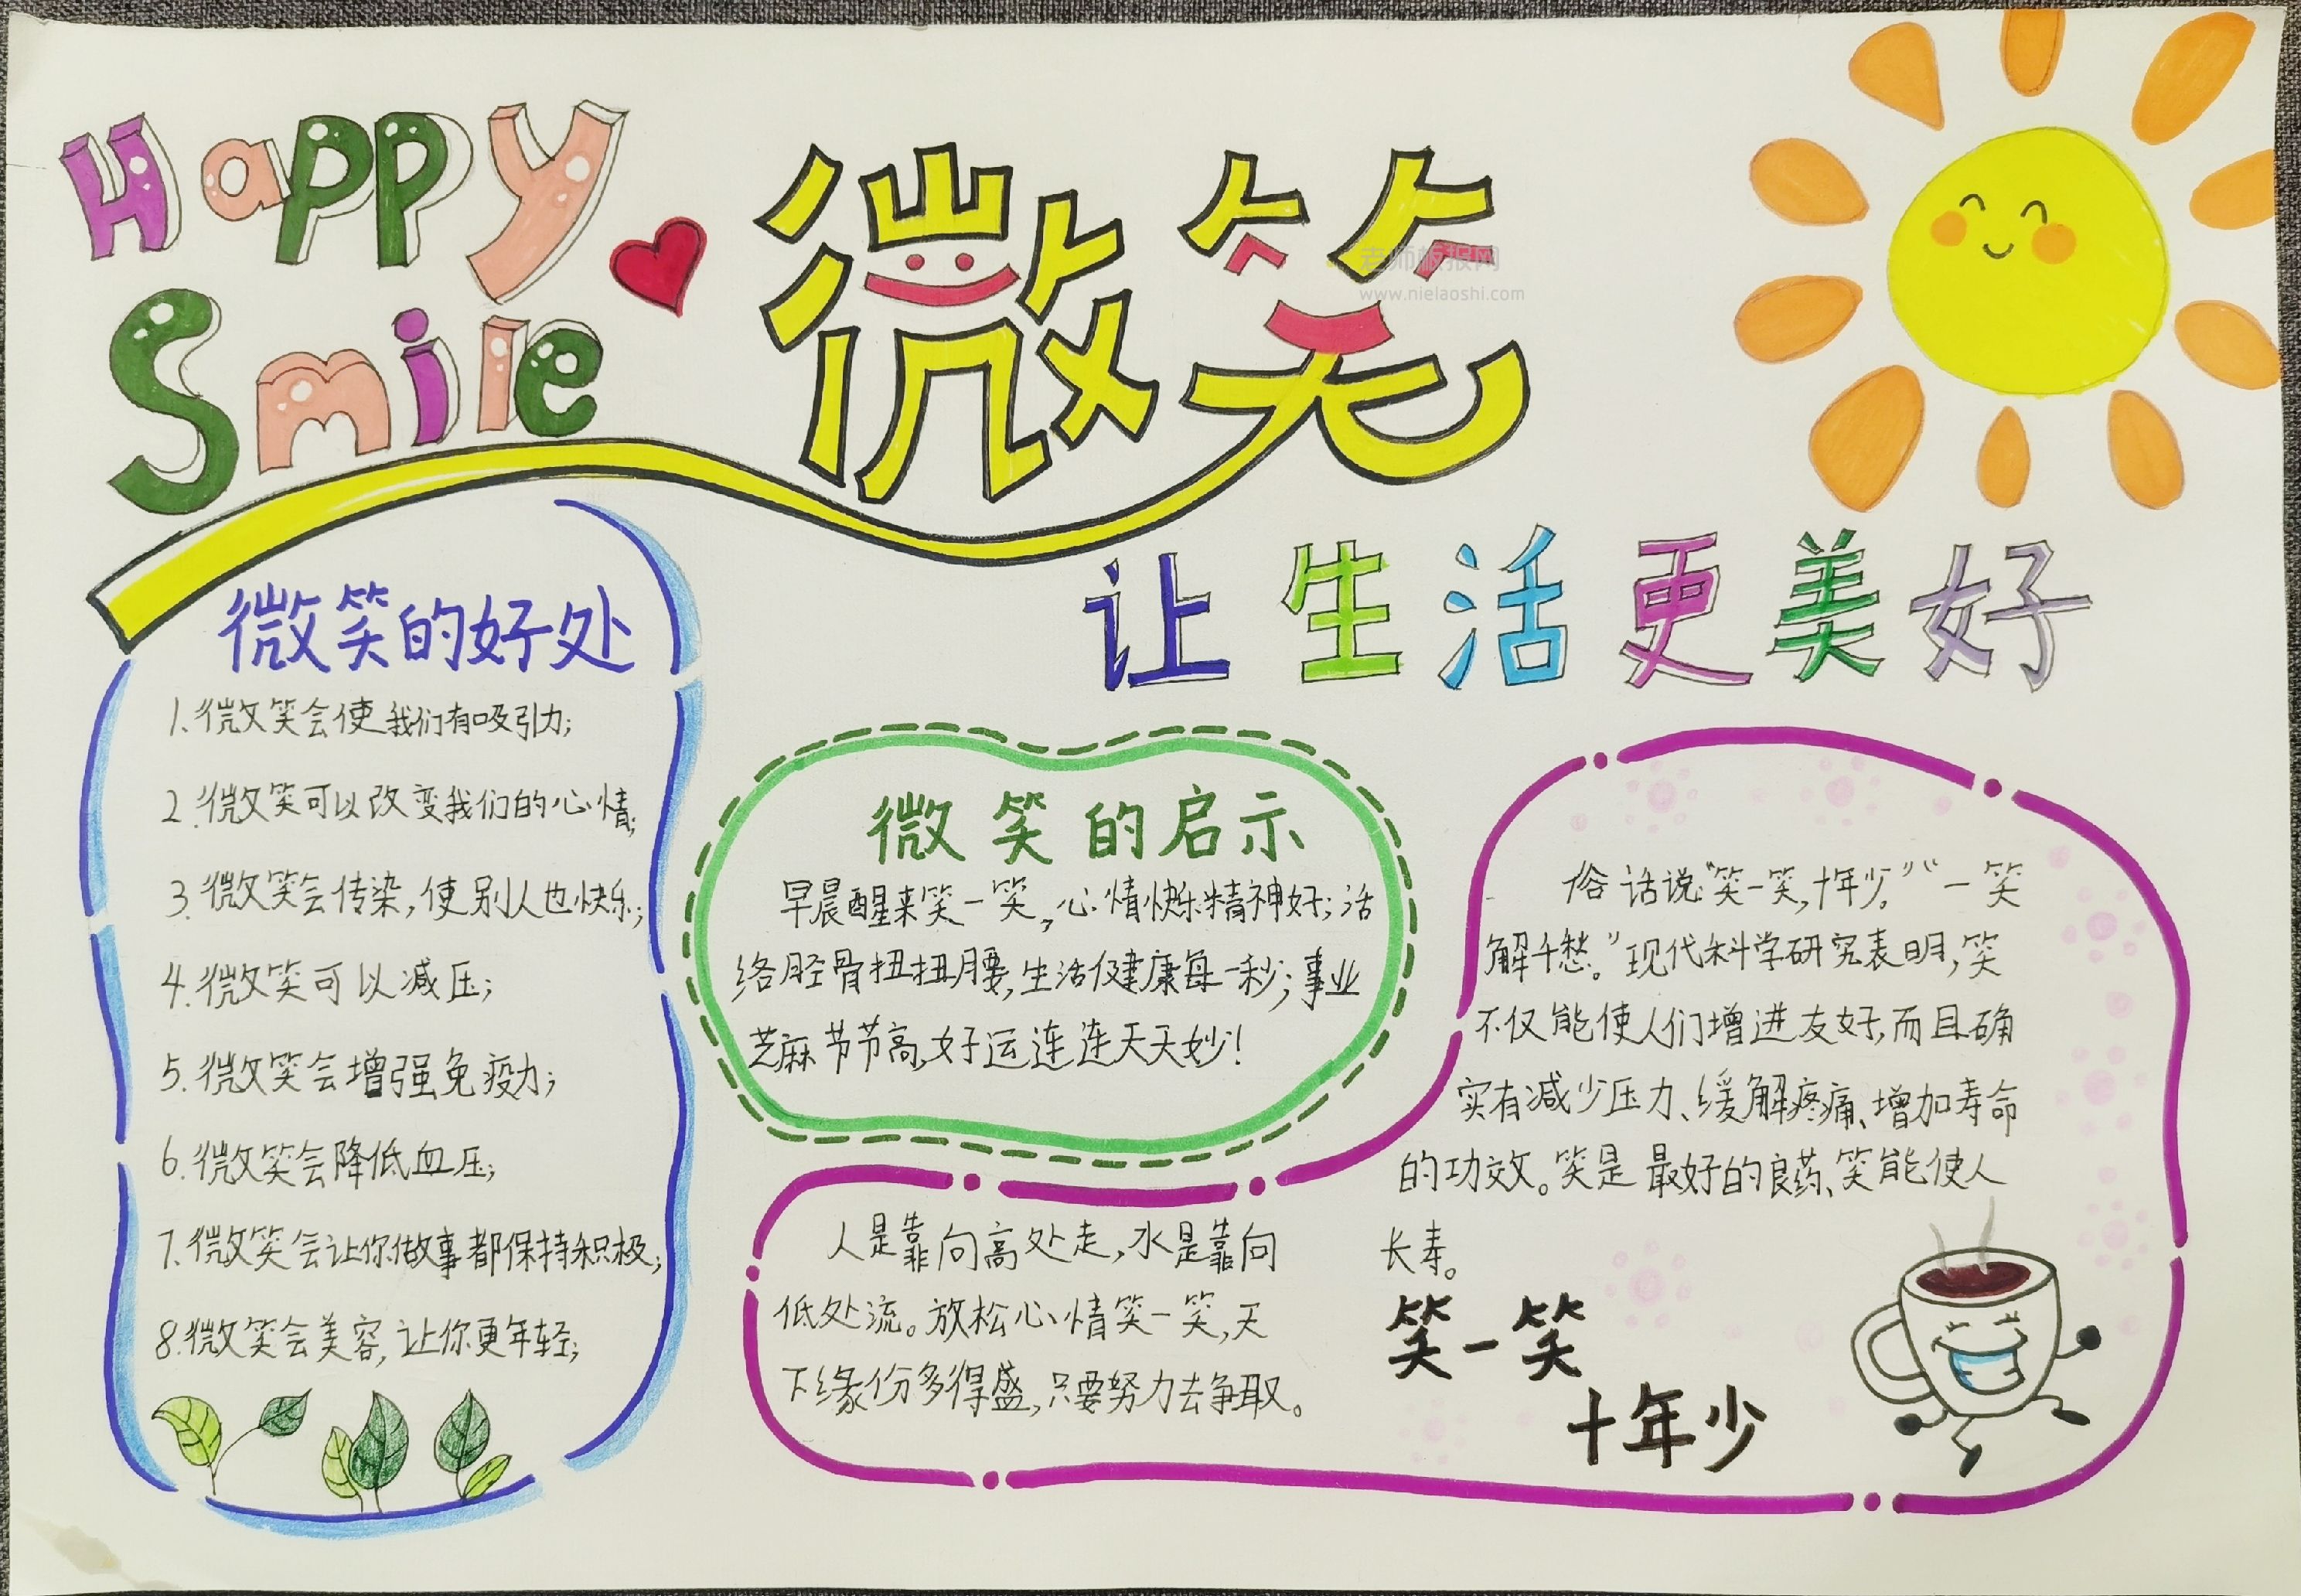 Happy
Smile
微笑
老师板报网
www.nielaoshi.com
让生活更美好
微笑的好处
1.微笑会使我们有吸引力;
2.微笑可以改变我们的心情;
3.微笑会传染,使别人也快乐;
4.微笑可以减压;
5.微笑会增强免疫力;
6.微笑会降低血压;
7.微笑会让你做事都保持积极;
8.微笑会美容,让你更年轻;
微笑的启示
早晨醒来笑一笑,心情快乐精神好;活
络胫骨扭扭腰,生活健康每一秒;事业
芝麻节节高,好运连连天天妙!
俗话说:“笑一笑,十年少。”“一笑
解千愁。”现代科学研究表明,笑
不仅能使人们增进友好,而且确
实有减少压力、缓解疼痛、增加寿命
的功效。笑是最好的良药、笑能使人
长寿。
人是靠向高处走,水是靠向
低处流。放松心情笑一笑,天
下缘份多得盛,只要努力去争取。
笑一笑
十年少